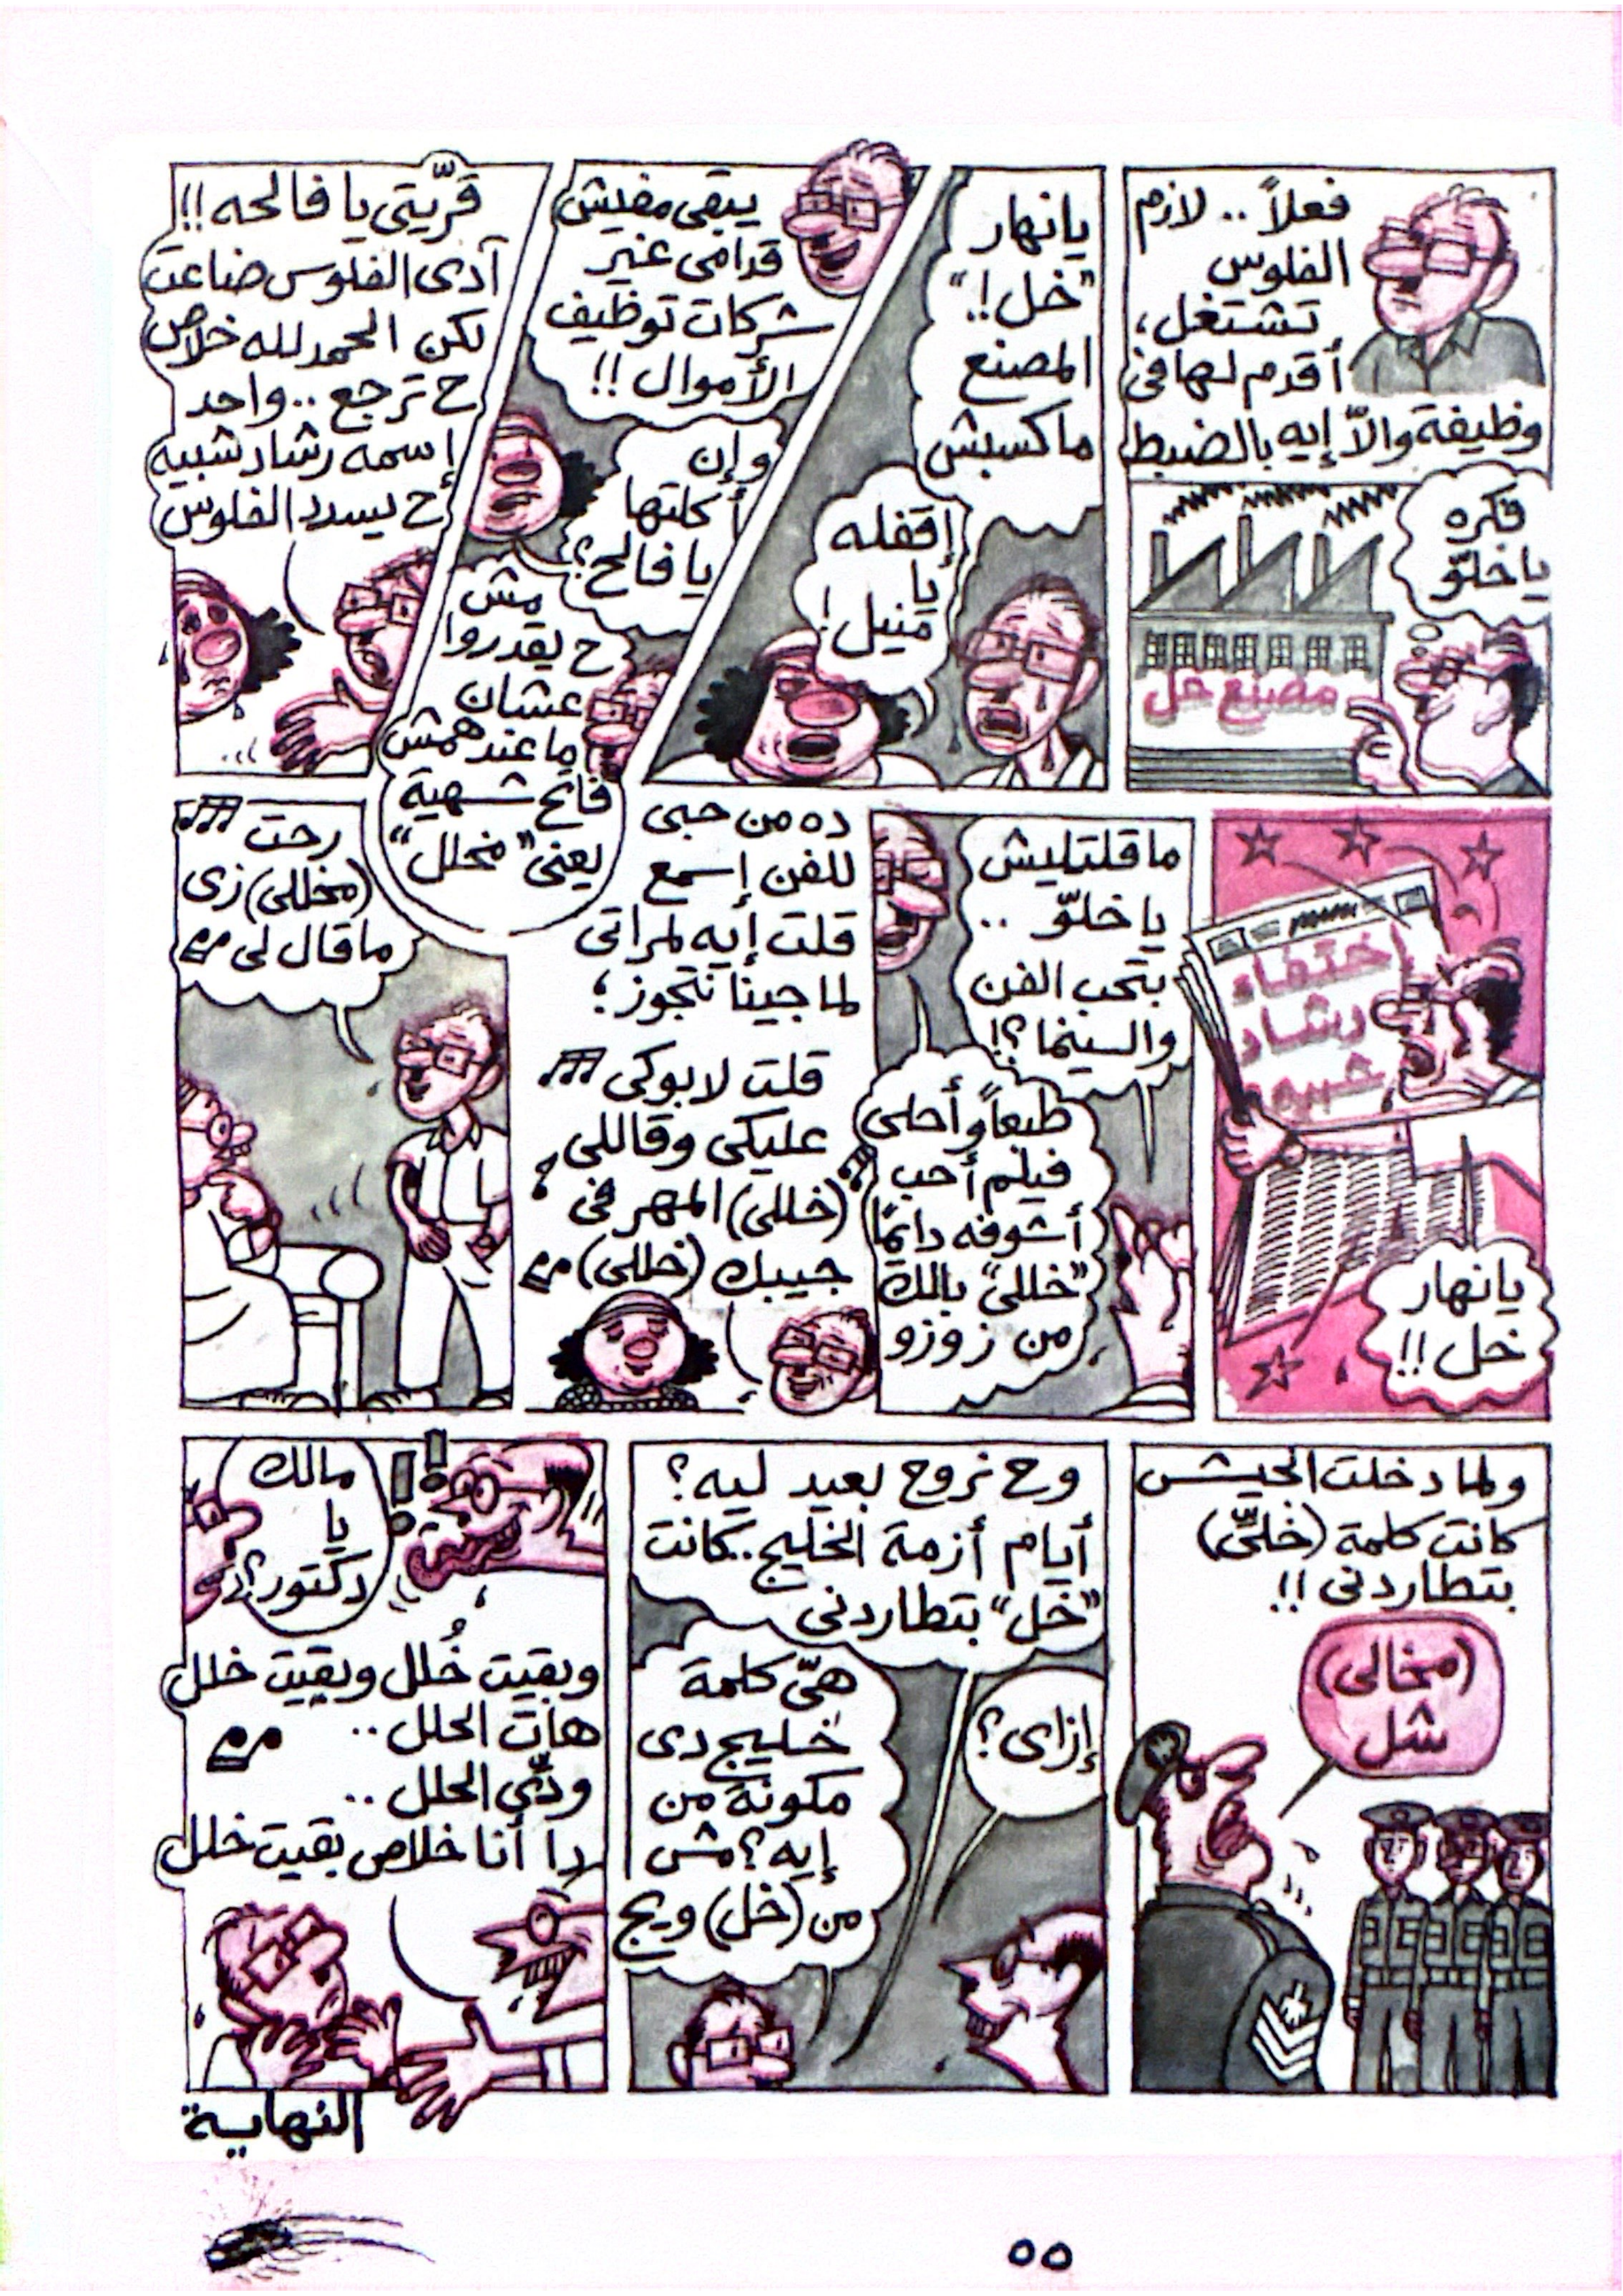 فعلاً .. لازم
الفلوس
تشتغل،
أقدم لها فى
وظيفة والاّ إيه بالضبط
فكره
يا خلّو
مصنع خل
يا نهار
"خل!"
المصنع
ماكسبش
إقفله
يا
منيل!
يبقى مفيش
قدامى غير
شركات توظيف
الأموال !!
وإن
أكلتها
يا فالح؟
مش
ح يقدروا
عشان
ما عندهمش
فاتح شهية
يعنى "مخلل"
قرّيتى يا فالحه !!
آدى الفلوس ضاعت
لكن الحمد لله خلاص
ح ترجع .. واحد
إسمه رشاد شبيه
ح يسدد الفلوس
إختفاء
رشاد
شبيه
يا نهار
خل !!
ما قلتليش
يا خلّو ..
بتحب الفن
والسينما ؟!
طبعاً وأحلى
فيلم أحب
أشوفه دايمًا
"خللى" بالك
من زوزو
ده من حبى
للفن إسمع
قلت إيه لمراتى
لما جينا نتجوز ؛
قلت لابوكى
عليكى وقاللى
(خللى) المهر فى
جيبك (خللى)
رحت
(مخللى) زى
ما قال لى
ولما دخلت الجيش
كانت كلمة (خلىّ)
بتطاردنى !!
(مخالى)
شل
وح نروح بعيد ليه ؟
أيام أزمة الخليج .. كانت
"خل" بتطاردنى
إزاى ؟
هىّ كلمة
خليج دى
مكونة من
إيه ؟ مش
من (خل) ويج
مالك
يا
دكتور؟
وبقيت خُلل وبقيت خلل
هات الحلل ..
ودّى الحلل ..
دا أنا خلاص بقيت خلل
النهاية
٥٥